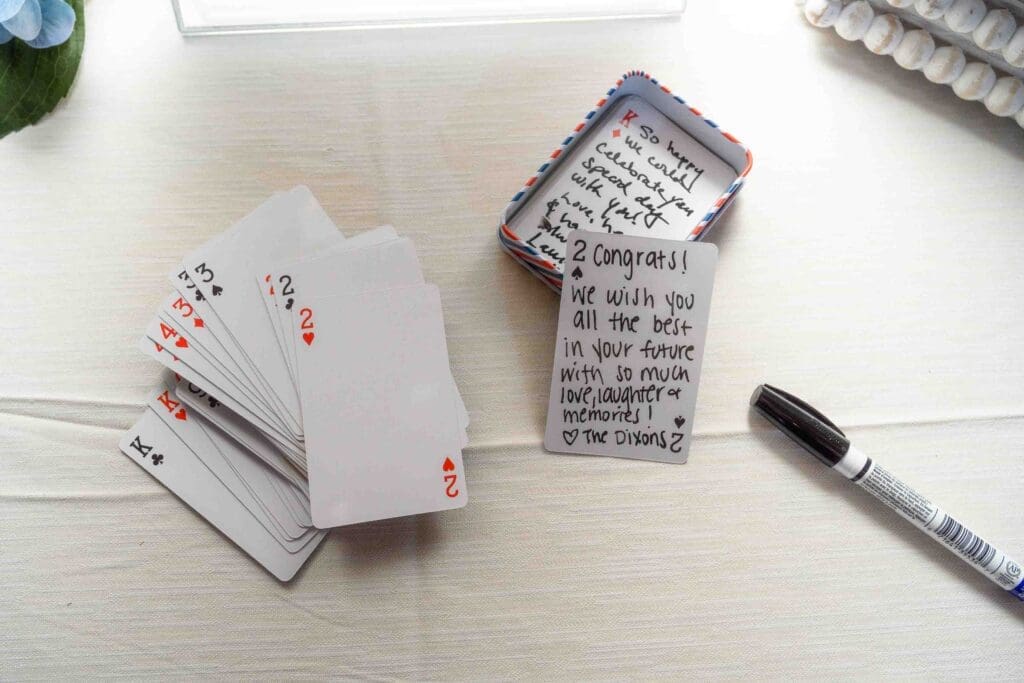 K So happy
we could
celebrate you
special day
with you!
Love,
2 Congrats!
We wish you
all the best
in your future
with so much
love, laughter &
memories!
♡ The Dixons 2
3
3
3
4
2
2
2
K
K